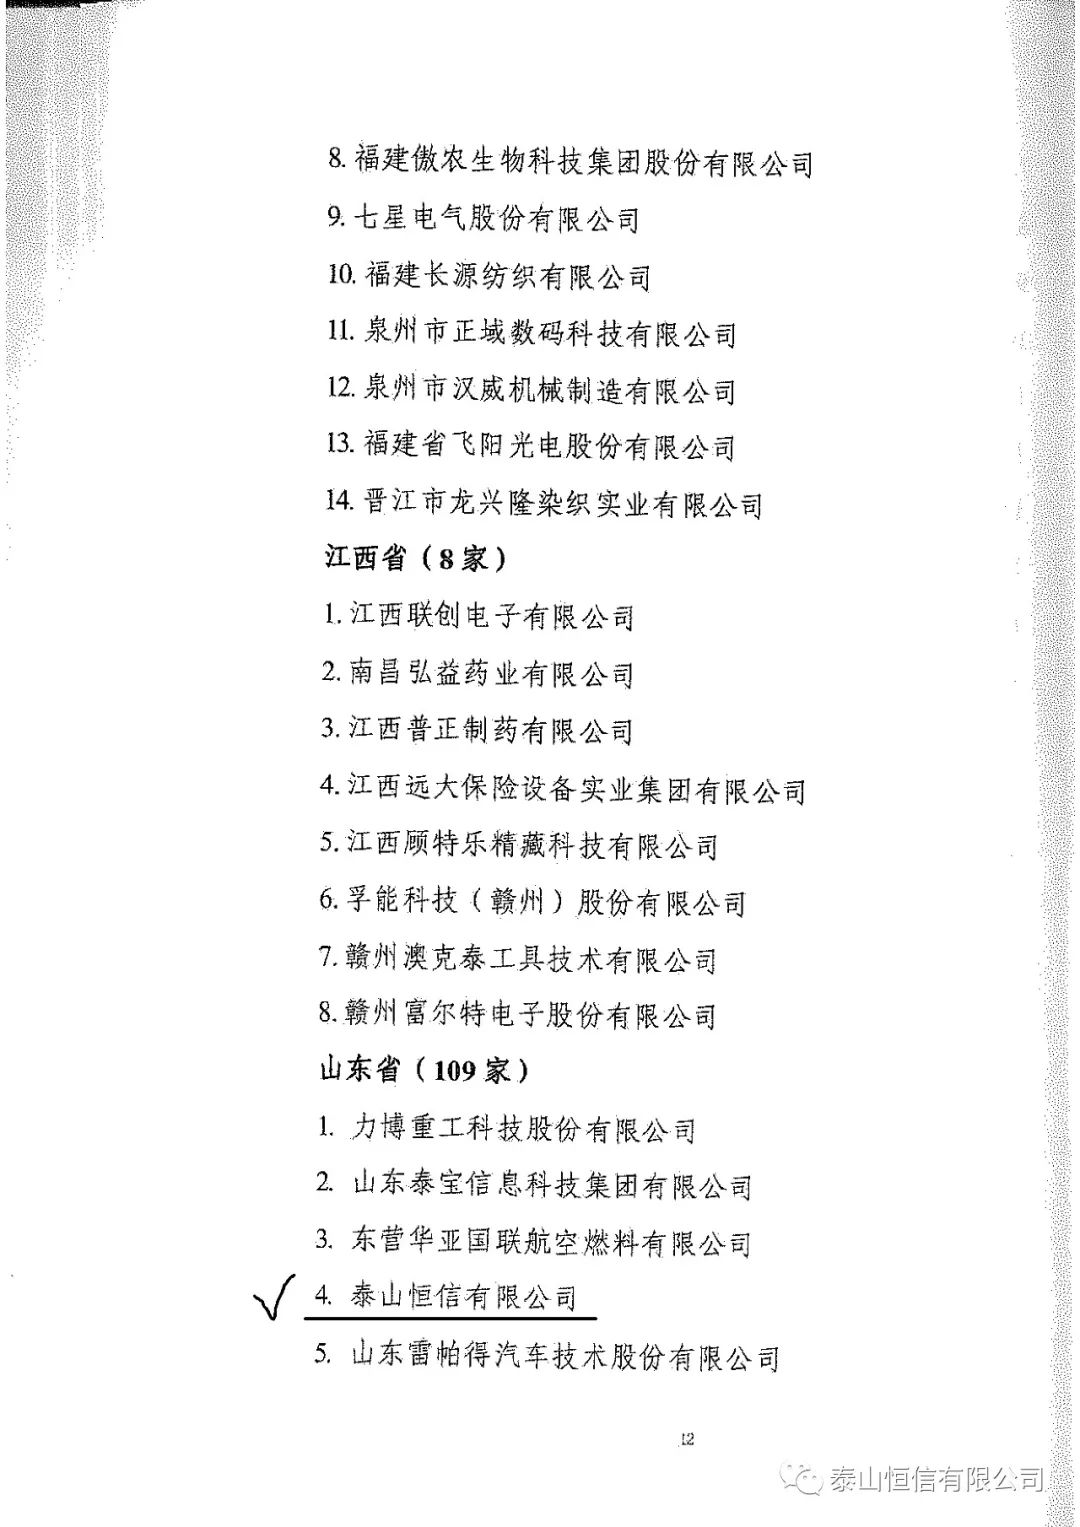 8. 福建傲农生物科技集团股份有限公司
9. 七星电气股份有限公司
10. 福建长源纺织有限公司
11. 泉州市正域数码科技有限公司
12. 泉州市汉威机械制造有限公司
13. 福建省飞阳光电股份有限公司
14. 晋江市龙兴隆染织实业有限公司
江西省（8 家）
1. 江西联创电子有限公司
2. 南昌弘益药业有限公司
3. 江西普正制药有限公司
4. 江西远大保险设备实业集团有限公司
5. 江西顾特乐精藏科技有限公司
6. 孚能科技（赣州）股份有限公司
7. 赣州澳克泰工具技术有限公司
8. 赣州富尔特电子股份有限公司
山东省（109 家）
1. 力博重工科技股份有限公司
2. 山东泰宝信息科技集团有限公司
3. 东营华亚国联航空燃料有限公司
4. 泰山恒信有限公司
5. 山东雷帕得汽车技术股份有限公司
12
泰山恒信有限公司